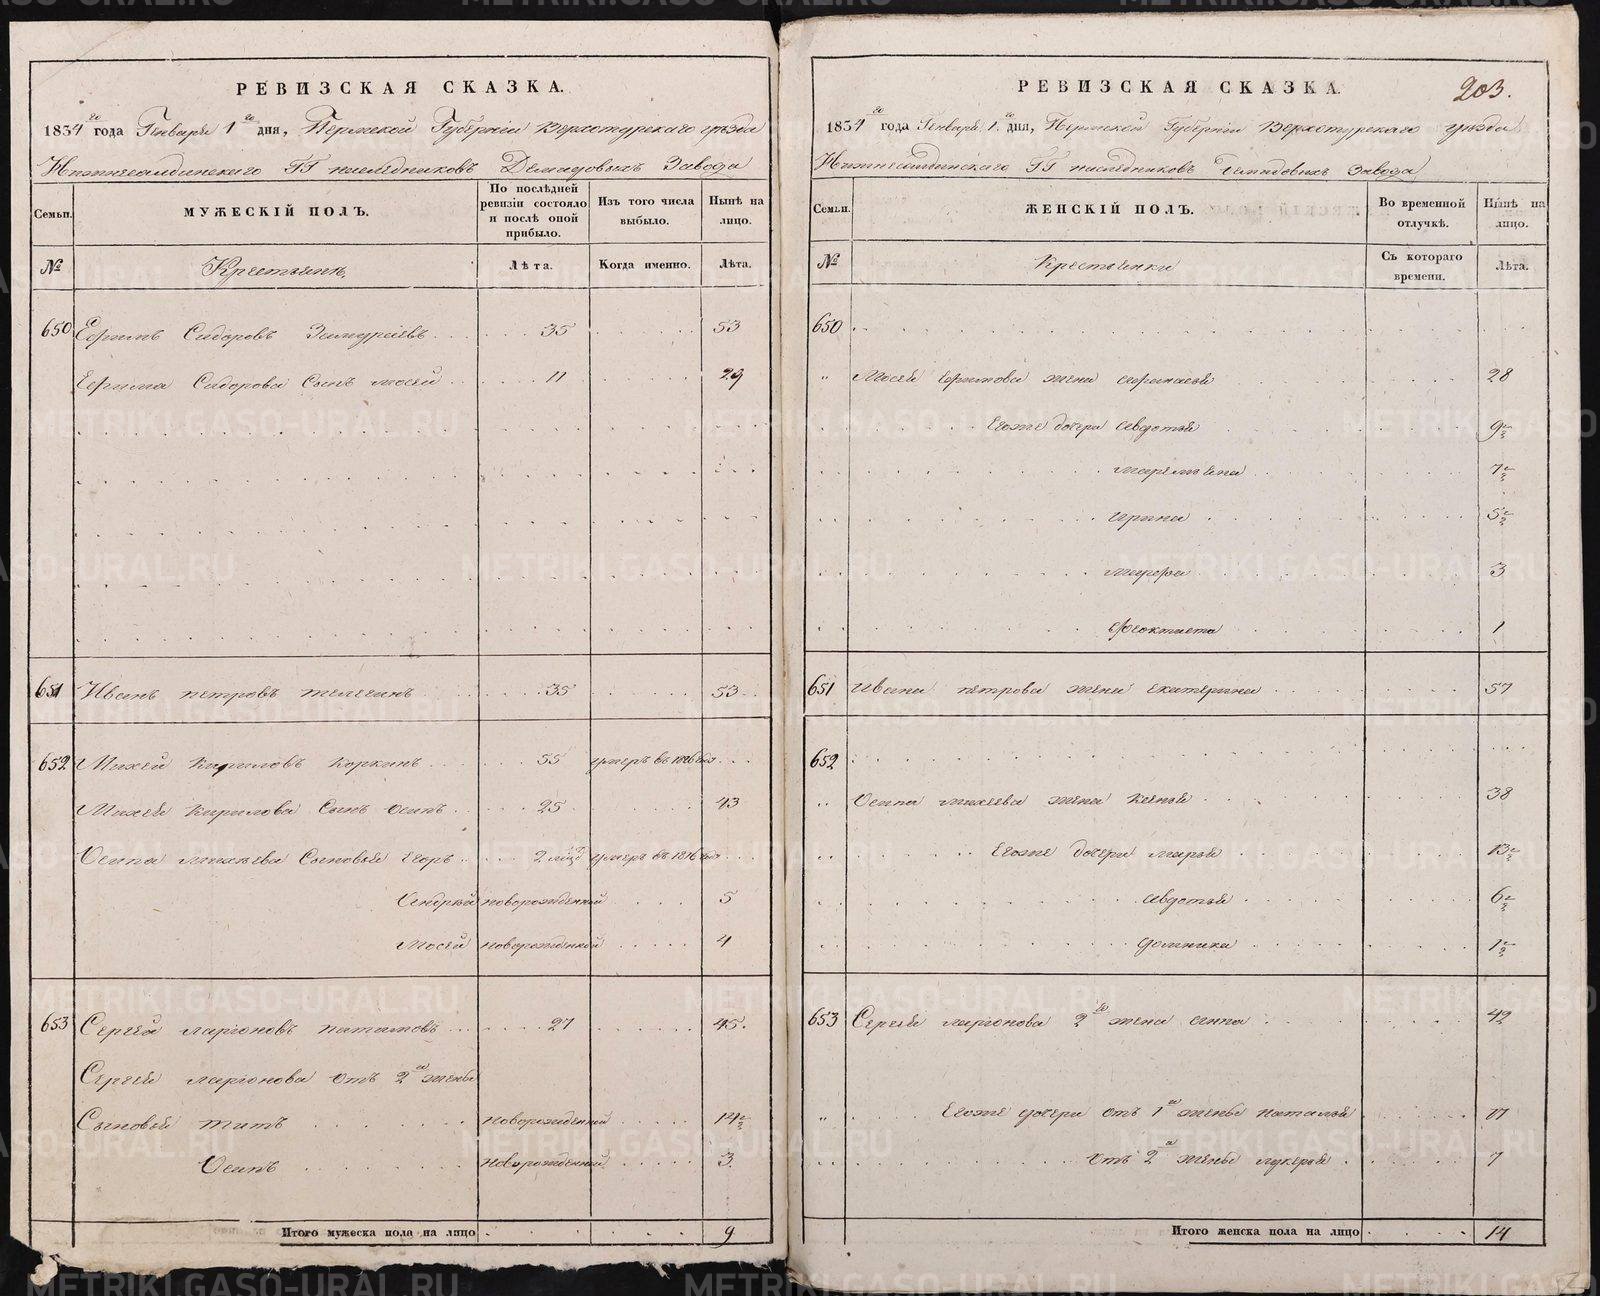 РЕВИЗСКАЯ СКАЗКА.
1834го года Генваря 1го дня, Пермской Губерніи Верхотурскаго уѣзда
Нижнесалдинскаго ГГ наследниковъ Демидовыхъ Завода
Семьи. МУЖЕСКІЙ ПОЛЪ. По послѣдней ревизіи состояло и послѣ оной прибыло. Изъ того числа выбыло. Нынѣ на лицо.
№ Крестьяне Лѣта. Когда именно. Лѣта.
650 Ефимъ Сидоровъ 35 53
Ефима Сидорова Сынъ Мосей 11 29
651 Иванъ Петровъ Телегинъ 35 53
652 Михей Кириловъ Коркинъ 55 умеръ въ 1826
Михея Кирилова Сынъ Осипъ 25 43
Осипа Михеева Сыновья Егоръ 2 умеръ въ 1816
Андрей новорожденный 5
Мосей новорожденный 4
653 Сергей Ларіоновъ Патаповъ 27 45.
Сергея Ларіонова отъ 2й жены
Сыновья Титъ новорожденный 14½
Осипъ новорожденный 3
Итого мужеска пола на лицо 9
203.
РЕВИЗСКАЯ СКАЗКА.
1834го года Генваря 1го дня, Пермской Губерніи Верхотурскаго уѣзда
Нижнесалдинскаго ГГ наследниковъ Демидовыхъ Завода
Семьи. ЖЕНСКІЙ ПОЛЪ. Во временной отлучкѣ. Нынѣ на лицо.
№ Крестьянки Съ котораго времени. Лѣта.
650
" Мосея Ефимова жена Афимья 28
Егоже дочери Авдотья 9½
Маремьяна 7½
Ирина 5½
Марфа 3
Феоктиста 1
651 Ивана Петрова жена Екатерина 57
652
" Осипа Михеева жена Ксенья 38
Егоже дочери Марья 13½
Авдотья 6½
Домника 1½
653 Сергея Ларіонова 2я жена Анна 42
" Егоже дочери отъ 1й жены Наталья 17
отъ 2й жены Лукерья 7
Итого женска пола на лицо 14
METRIKI.GASO-URAL.RU